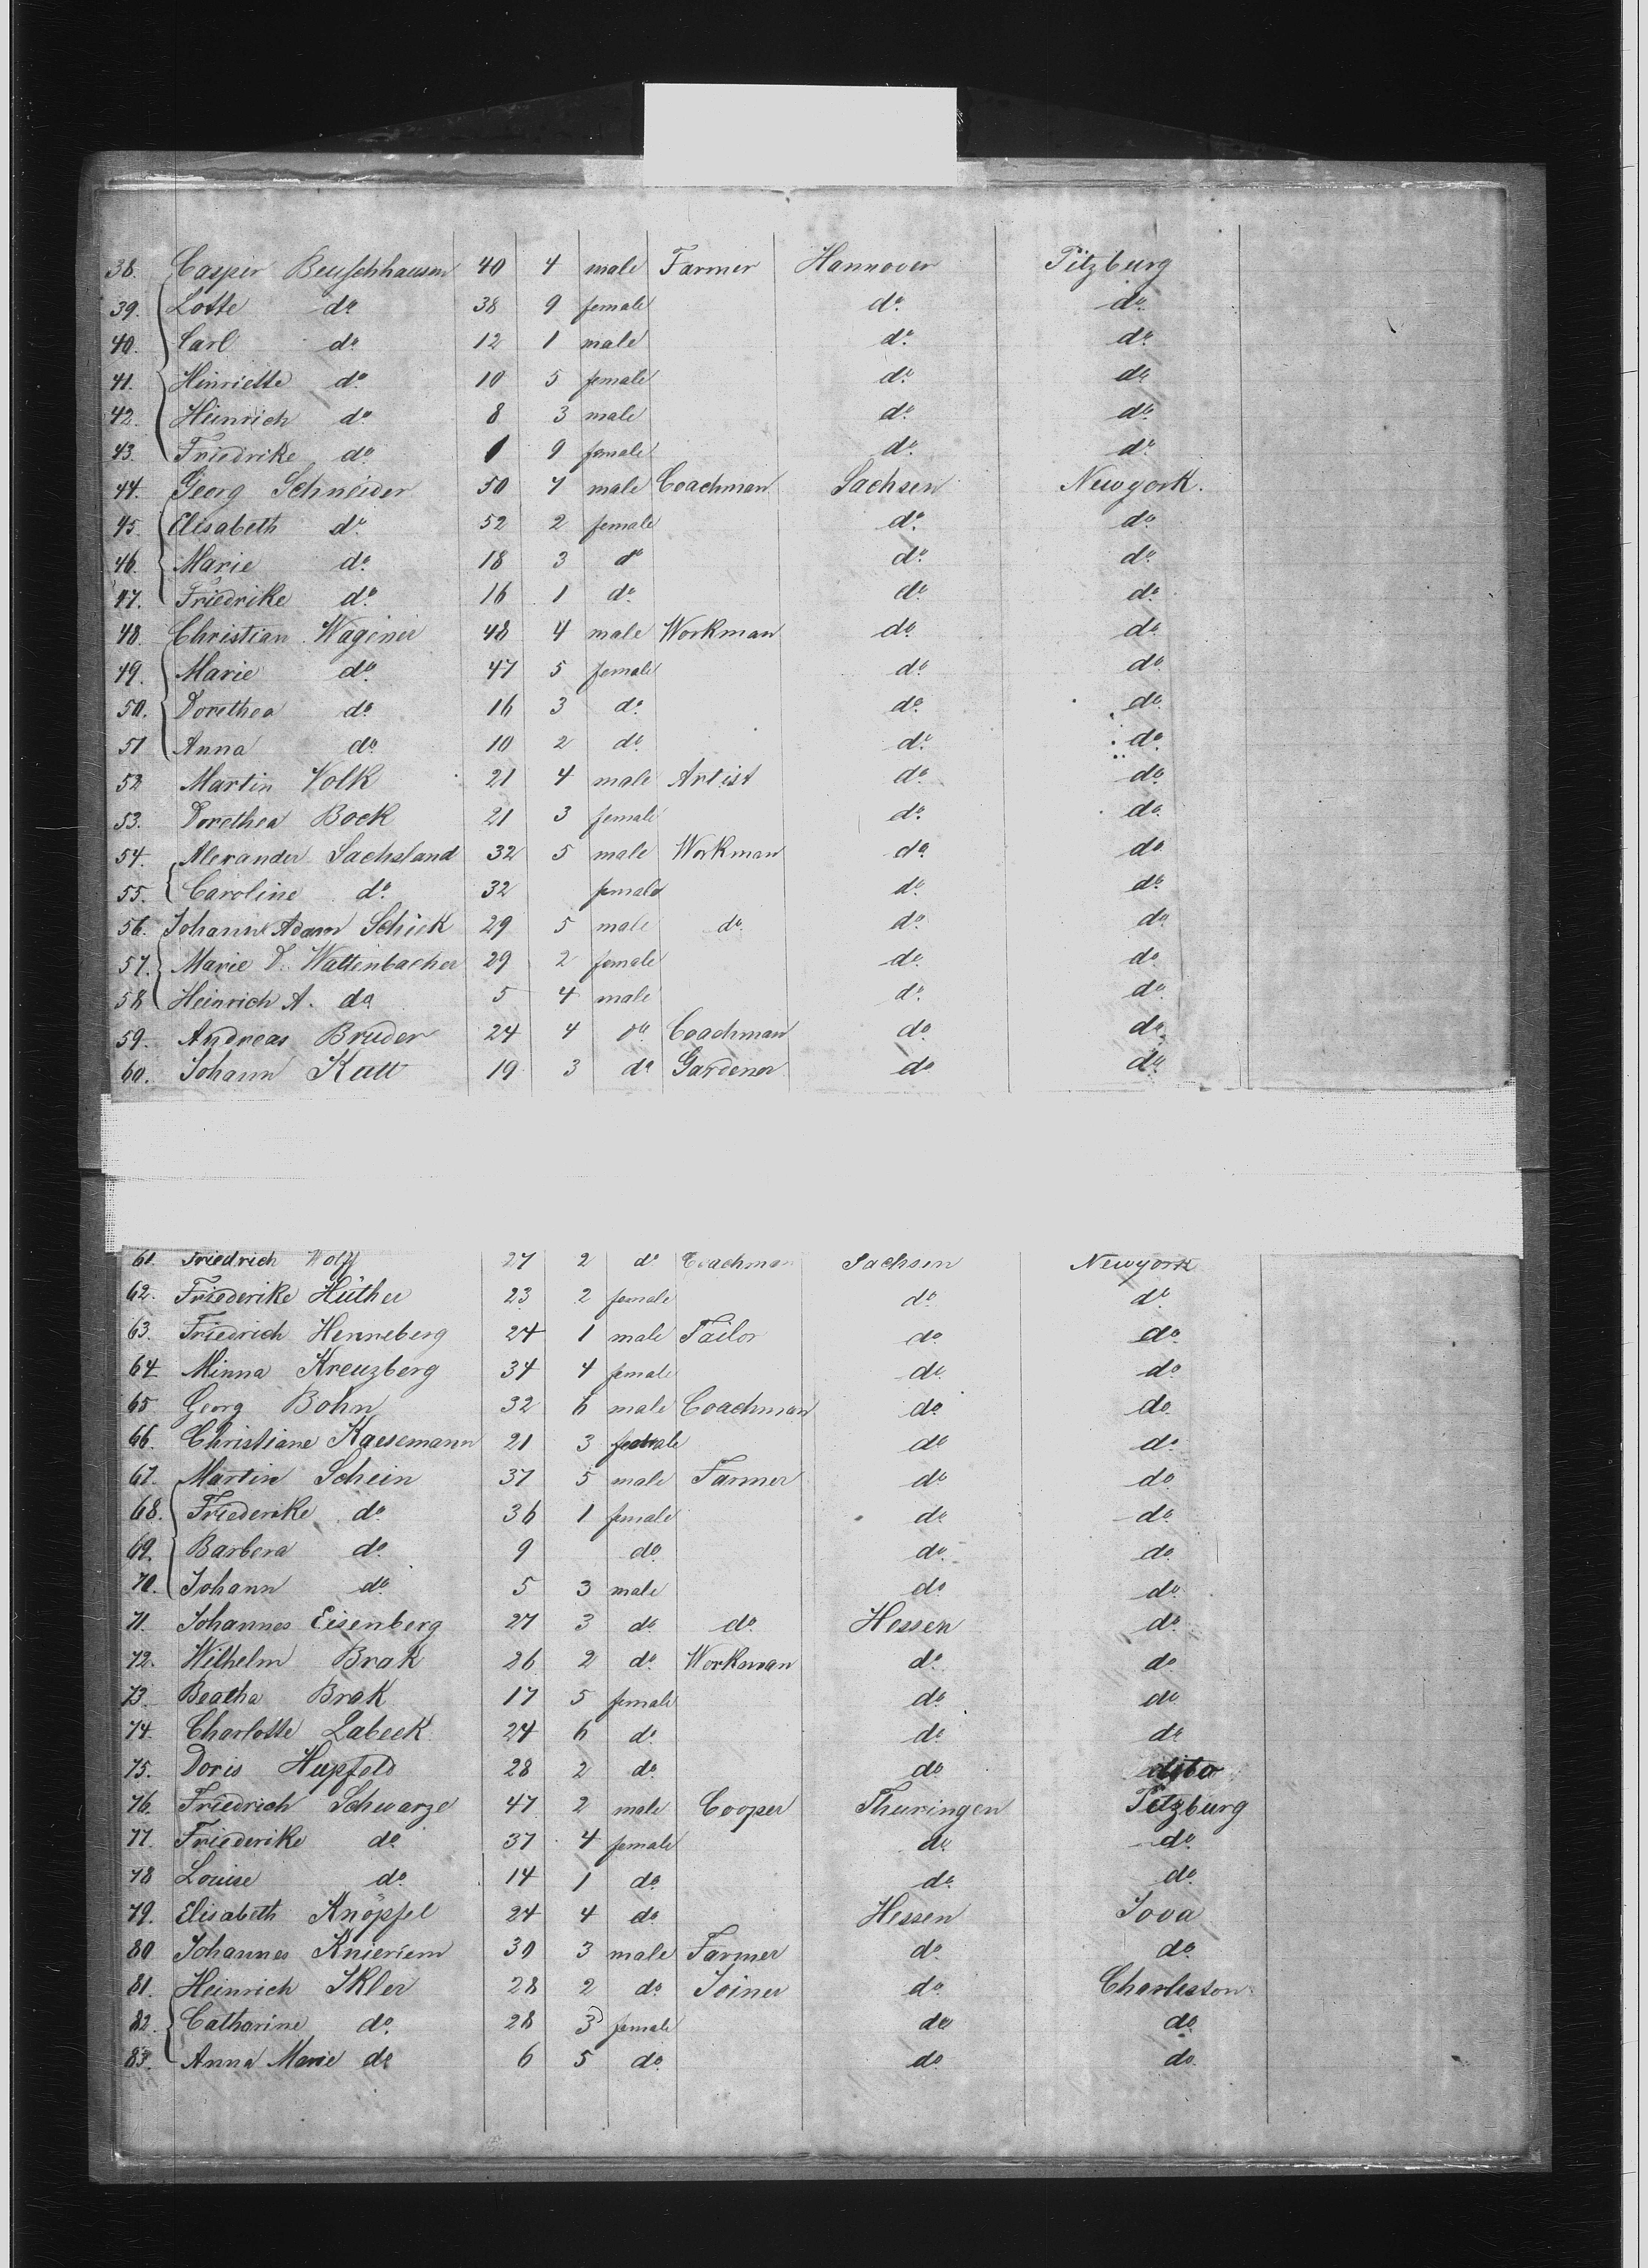 38. Casper Beuschhausen 40 4 male Farmer Hannover Pitzburg
39. Lotte do 38 9 female do. do.
40. Carl do. 12 1 male do. do.
41. Henriette do. 10 5 female do. do
42. Heinrich do. 8 3 male do. do.
43. Friedrike do. 1 9 female do. do.
44. Georg Schneider 50 7 male Coachman Sachsen Newyork.
45. Elisabeth do. 52 2 female do. do.
46. Marie do. 18 3 do do. do.
47. Friedrike do. 16 1 do. do. do.
48. Christian Wagener 48 4 male Workman do. do.
49. Marie do. 47 5 female do. do.
50. Dorethea do. 16 3 do. do. do.
51 Anna do. 10 2 do. do. do.
52 Martin Volk 21 4 male Artist do. do.
53. Dorethea Bock 21 3 female do. do.
54. Alexander Sachsland 32 5 male Workman do. do
55. Caroline do. 32 female do. do.
56. Johann Adam Schick 29 5 male do. do. do
57. Marie D. Wattenbacher 29 2 female do. do
58 Heinrich A. do 5 4 male do. do.
59. Andreas Bruder 24 4 do Coachman do. do.
60. Johann Kutt 19 3 do Gardener do do.
61. Friedrich Wolff 27 2 do Coachman Sachsen Newyork
62. Friederike Hüther 23 2 female do. do.
63. Friedrich Henneberg 24 1 male Tailor do. do.
64 Minna Kreuzberg 34 4 female do. do
65 Georg Bohn 32 6 male Coachman do. do.
66. Christiane Kaesemann 21 3 female do do.
67. Martin Schein 37 5 male Farmer do. do.
68. Friederike do. 36 1 female do. do.
69. Barbera do. 9 do. do. do.
70. Johann do. 5 3 male do do.
71. Johannes Eisenberg 27 3 do. do. Hessen do.
72. Wilhelm Brak 26 2 do. Workman do. do
73. Beatha Brak 17 5 female do. do.
74. Charlotte Labeek 24 6 do. do. do
75. Doris Hupfeld 28 2 do. do. dito
76. Friedrich Schwarze 47 2 male Cooper Thuringen Pitzburg
77. Friederike do. 37 4 female do. do.
78 Louise do. 14 1 do. do. do.
79. Elisabeth Knöpfel 24 4 do. Hessen Iova
80 Johannes Knieriem 30 3 male Farmer do. do.
81. Heinrich Ikler 28 2 do. Joiner do. Charleston
82. Catharine do. 28 3 female do do.
83. Anna Marie do 6 5 do. do. do.